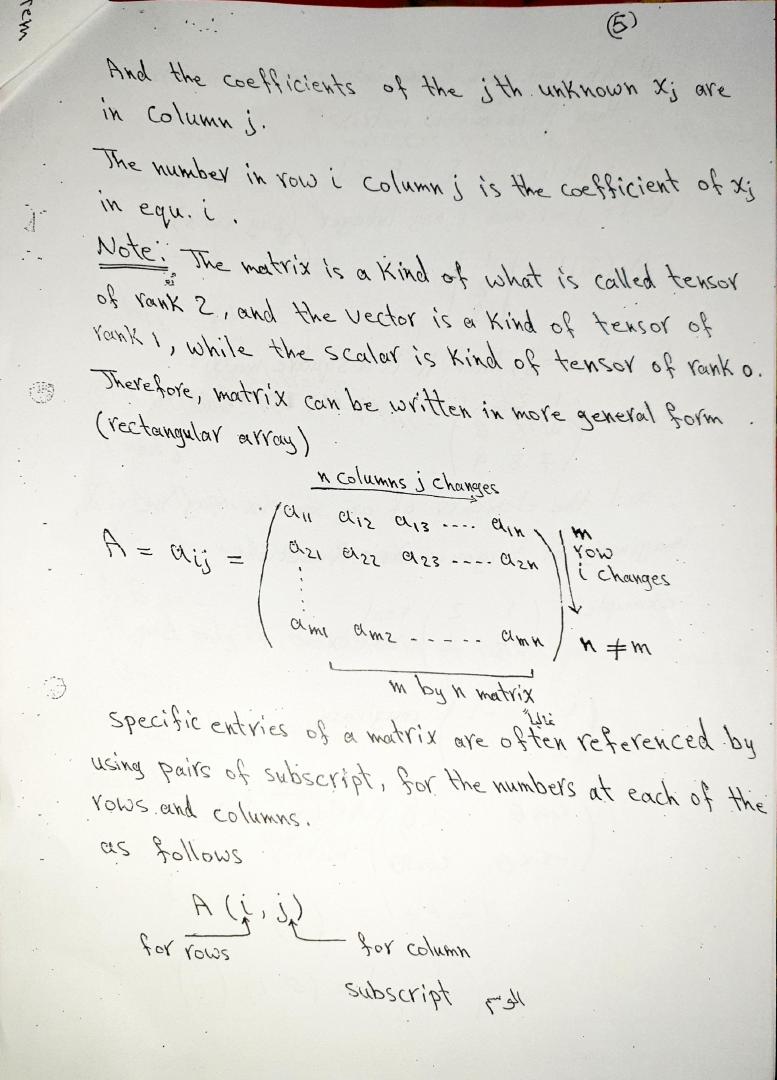 rem
(5)
And the coefficients of the jth unknown xj are
in column j.
The number in row i column j is the coefficient of xj
in equ. i.
Note: The matrix is a kind of what is called tensor
of rank 2, and the vector is a kind of tensor of
rank 1, while the scalar is kind of tensor of rank 0.
Therefore, matrix can be written in more general form
(rectangular array)
n columns j changes
A = aij = ( a11 a12 a13 .... a1n )
a21 a22 a23 .... a2n
am1 am2 ...... amn
m
row
i changes
n ≠ m
m by n matrix
غالباً
specific entries of a matrix are often referenced by
using pairs of subscript, for the numbers at each of the
rows and columns.
as follows
A (i, j)
for rows
for column
subscript الوسم